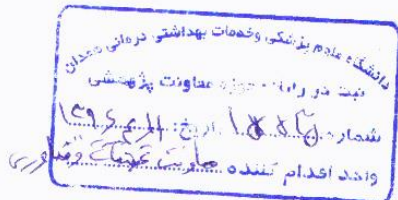 دانشگاه علوم پزشکی وخدمات بهداشتی درمانی همدان
ثبت در رایانه حوزه معاونت پژوهشی
شماره: تاریخ:
واحد اقدام کننده معاونت تحقیقات و فناوری